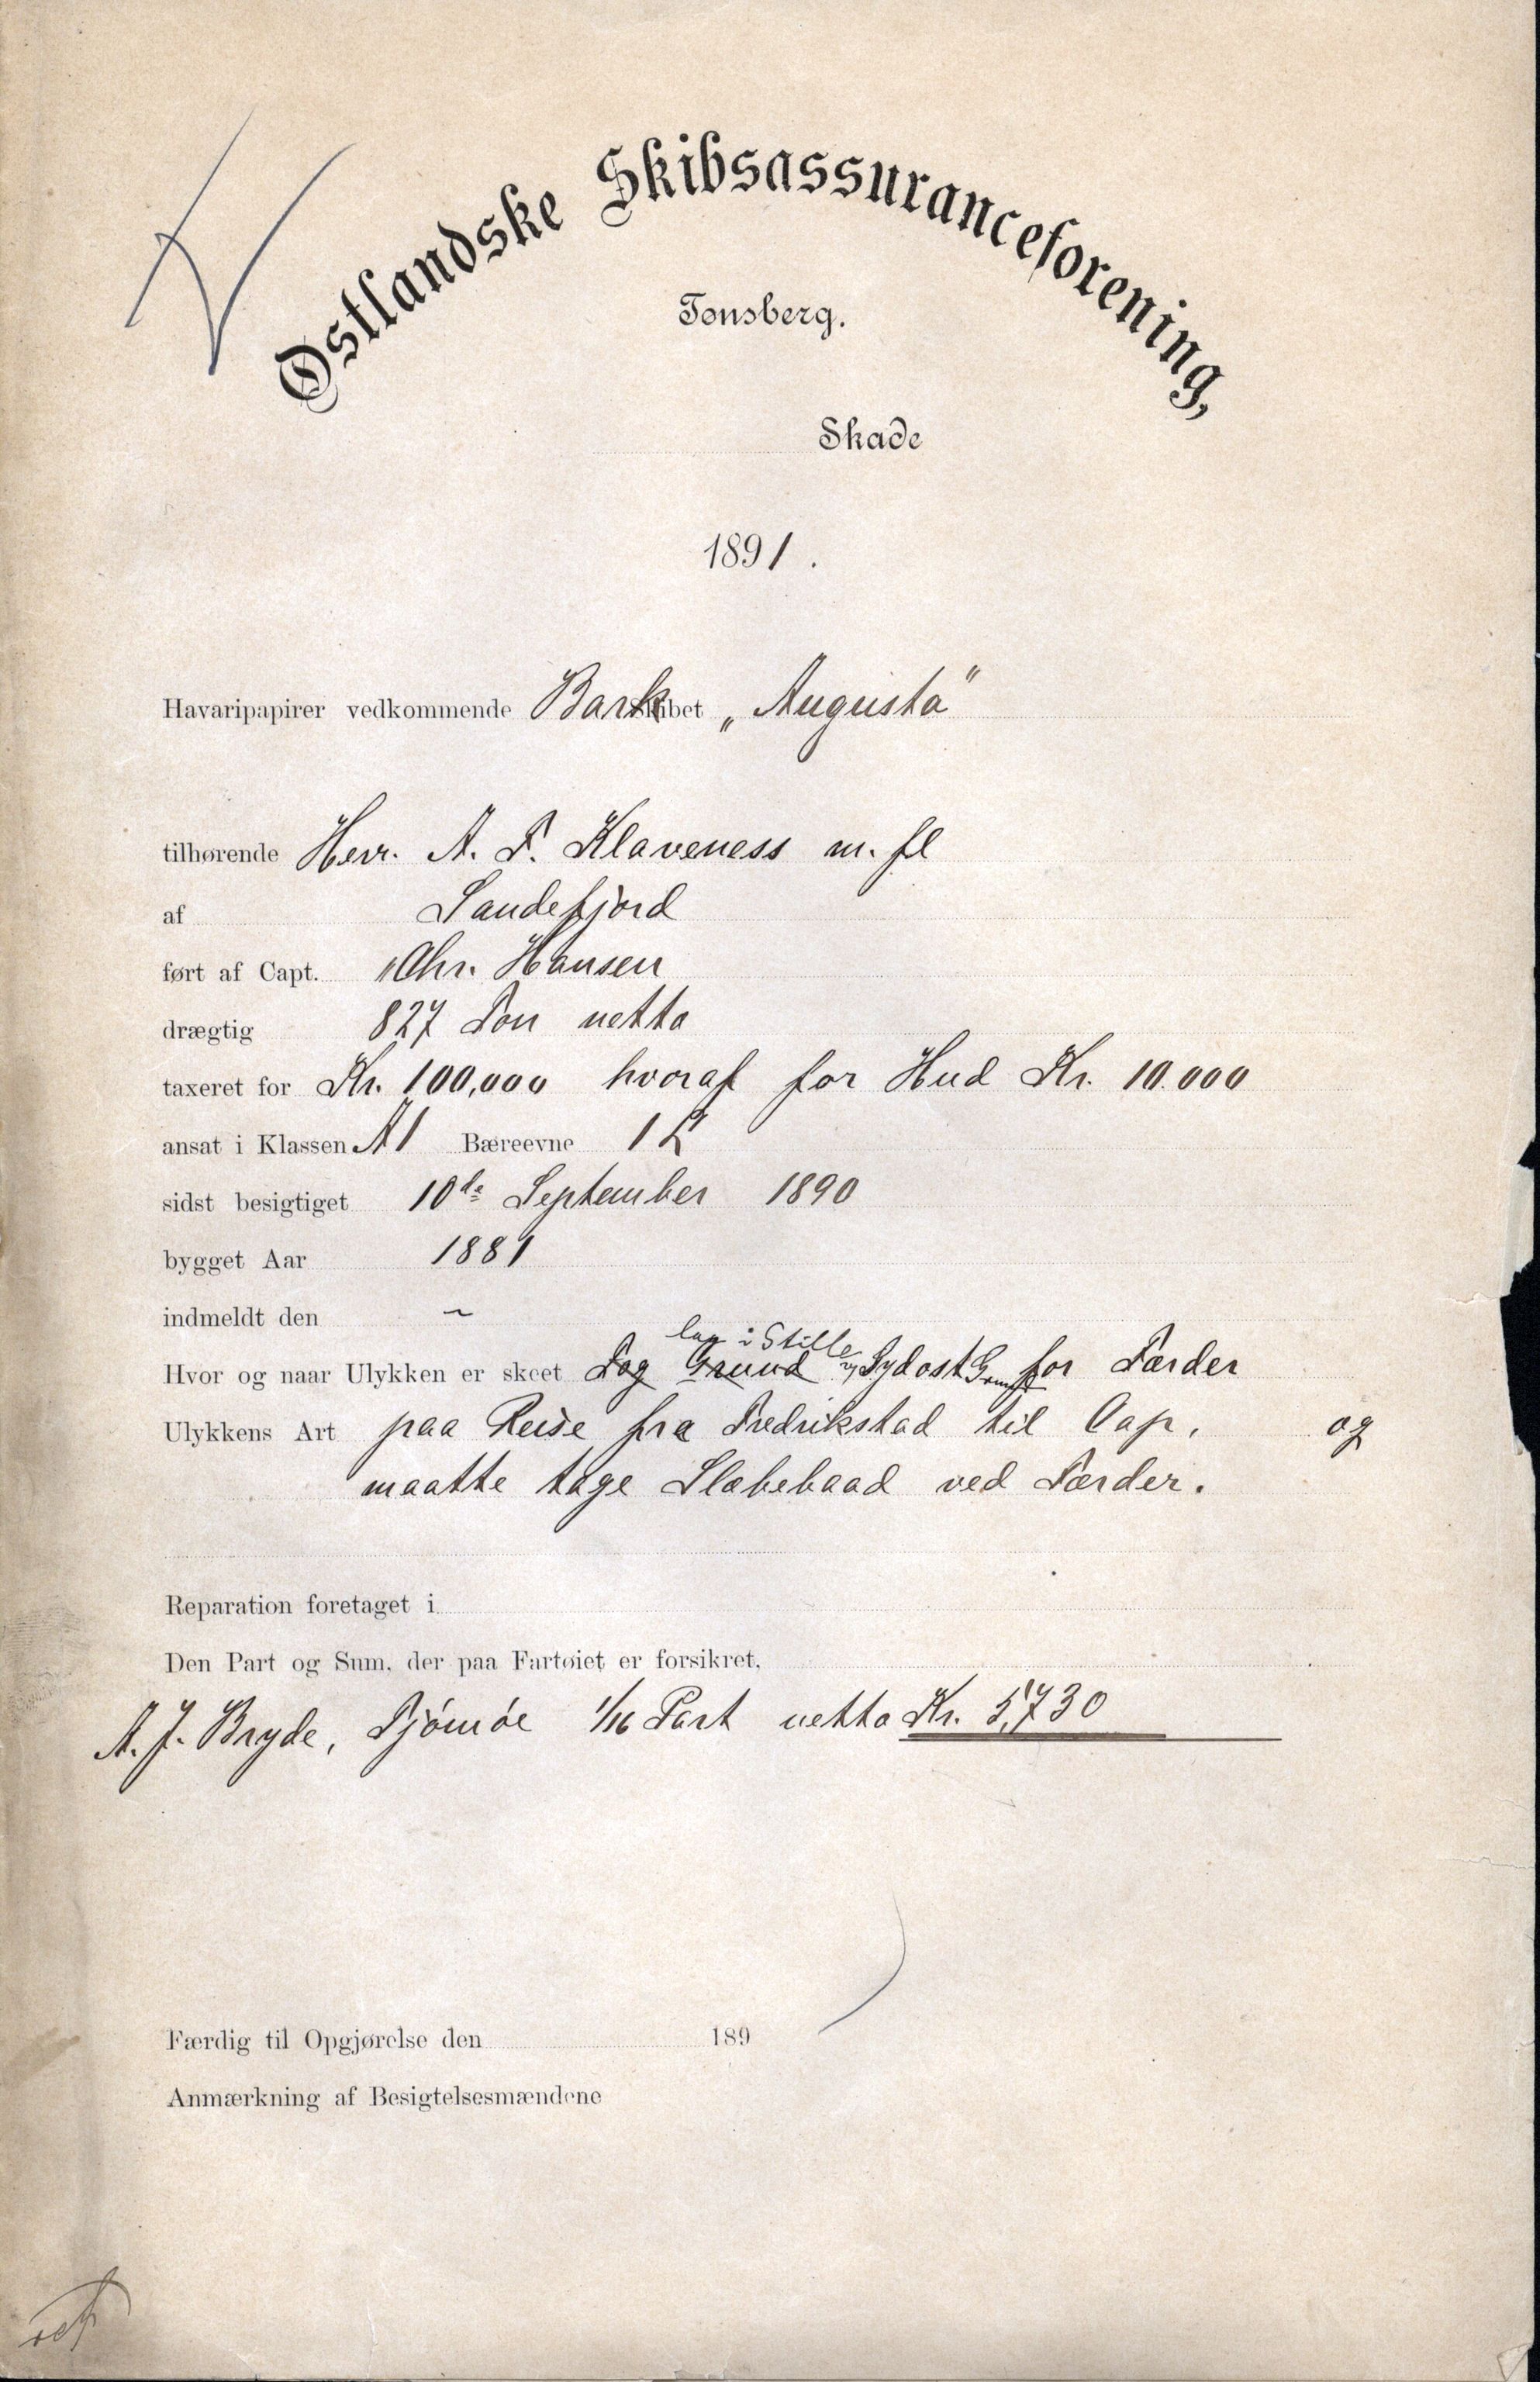 Østlandske Skibsassuranceforening,
Tønsberg.
Skade
1891.
Havaripapirer vedkommende Bark Skibet „Augusta"
tilhørende Herr. A. F. Klaveness m. fl
af Sandefjord
ført af Capt. Chr. Hansen
drægtig 827 Ton netto
taxeret for Kr. 100,000 hvoraf for Hud Kr. 10.000
ansat i Klassen A1 Bæreevne 1
sidst besigtiget 10de September 1890
bygget Aar 1881
indmeldt den ~
lag i Stille
Hvor og naar Ulykken er skeet Tog Grund Sydost for Færder
Ulykkens Art paa Reise fra Fredrikstad til Cap, og
maatte tage Slæbebaad ved Færder.
Reparation foretaget i
Den Part og Sum, der paa Fartøiet er forsikret,
A. J. Bryde, Tjömöe 1/16 Part netto Kr. 5,730
Færdig til Opgjørelse den 189
Anmærkning af Besigtelsesmændene